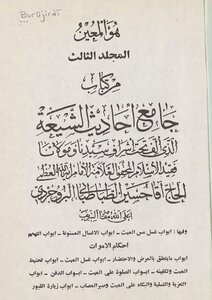 Burūjirdī
هو المعين
المجلد الثالث
من كتاب
جامع أحاديث الشيعة
الذي ألف تحت إشراف سيدنا و مولانا
فقيه الإسلام المحقق العلامة الإمام آية الله العظمى
الحاج آقا حسين الطباطبائي البروجردي
اعلى الله مقامه الشريف
وفيها : ابواب غسل مس الميت - ابواب الاغسال المسنونة - ابواب التيمم
احكام الاموات
ابواب مايتعلق بالمرض والاحتضار - ابواب غسل الميت - ابواب تحنيط
الميت وتكفينه - ابواب الصلوة على الميت - ابواب الدفن - ابواب
التعزية والتسلية والبكاء على الميت وصبر المصاب - ابواب زيارة القبور